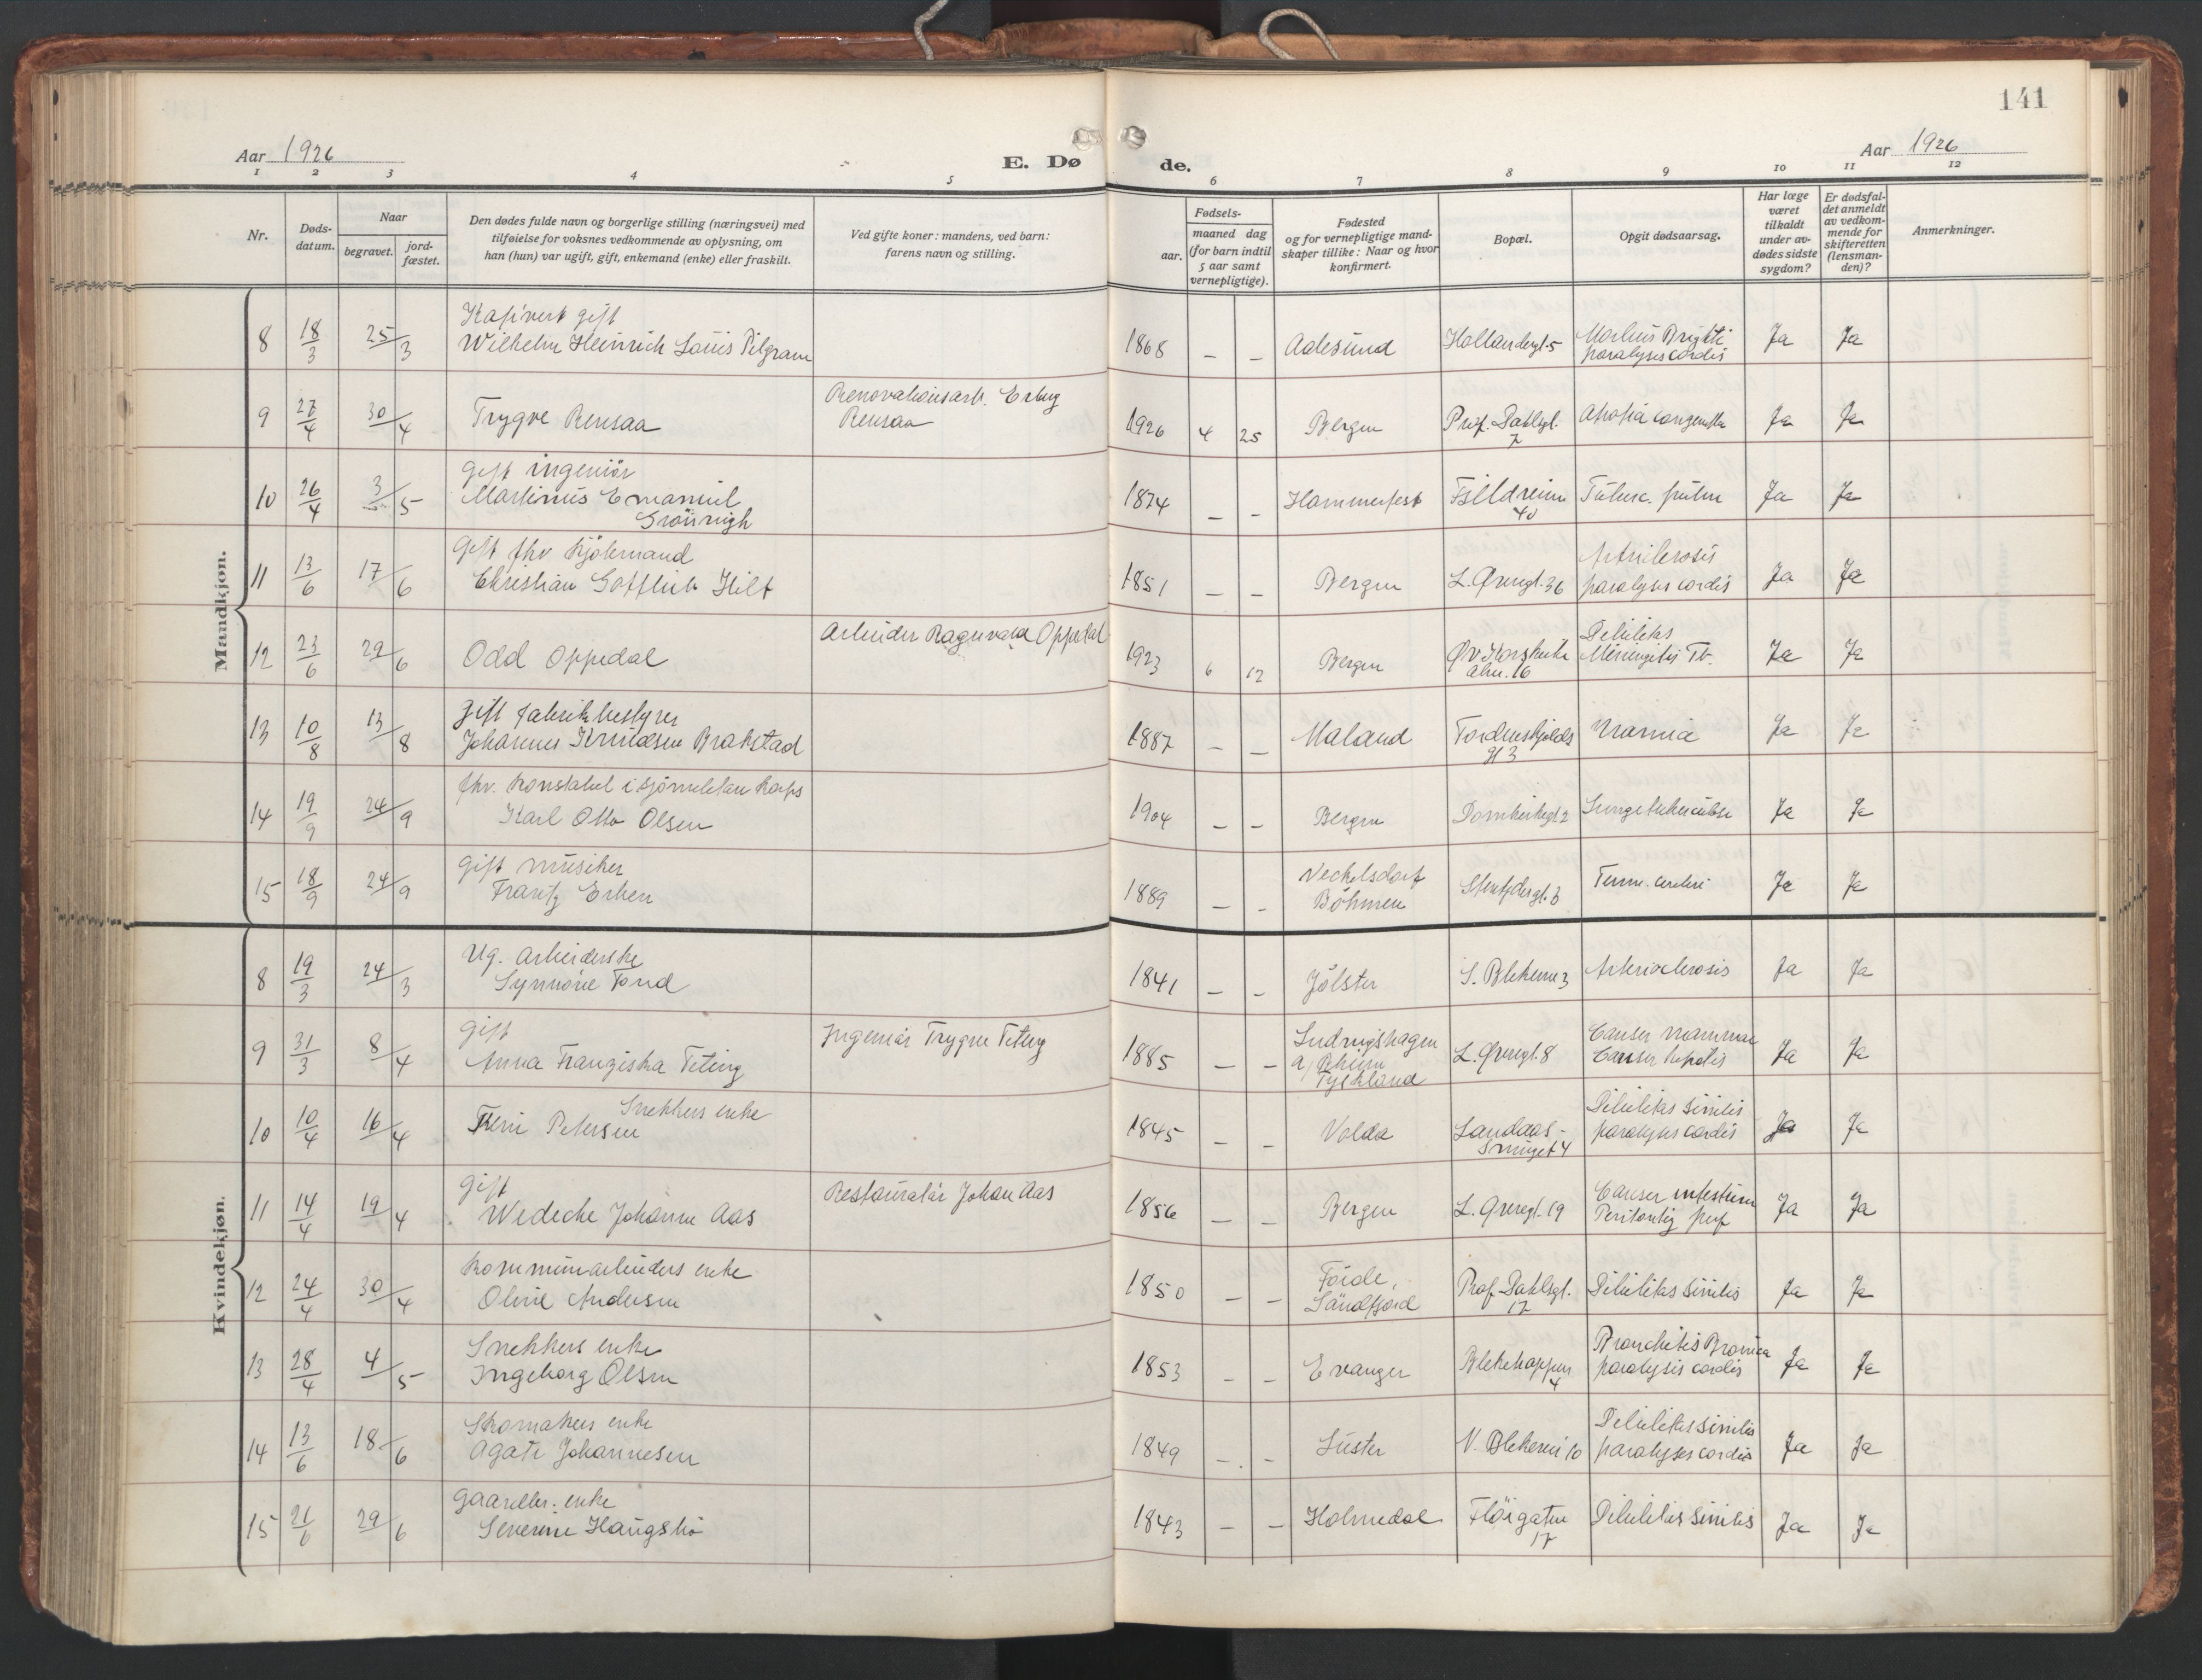 141
Aar 1926
E. Døde.
Aar 1926
1 2 3 4 5 6 7 8 9 10 11 12
Nr.
Døds-
datum.
Naar
begravet.
jord-
fæstet.
Den dødes fulde navn og borgerlige stilling (næringsvei) med
tilføielse for voksnes vedkommende av oplysning, om
han (hun) var ugift, gift, enkemand (enke) eller fraskilt.
Ved gifte koner: mandens, ved barn:
farens navn og stilling.
Fødsels-
aar.
maaned dag
(for barn indtil
5 aar samt
vernepligtige).
Fødested
og for vernepligtige mand-
skaper tillike: Naar og hvor
konfirmert.
Bopæl.
Opgit dødsaarsag.
Har læge
været
tilkaldt
under av-
dødes sidste
sygdom?
Er dødsfal-
det anmeldt
av vedkom-
mende for
skifteretten
(lensman-
den)?
Anmerkninger.
Mandkjøn.
8 18/3 25/3 gift
Wilhelm Heinrich Louis Pilgram
1868 – – Aalesund Hollendergt. 5 Morbus Brigtii
paralysis cordis Ja Ja
9 27/4 30/4 Trygve Rensaa Renovationsarb. Erling
Rensaa
1926 4 25 Bergen Prof. Dahlsgt.
7 congenita Ja Ja
10 26/4 3/5 Gift ingeniør
Martinus Emanuel
1874 – – Hammerfest Fjeldveien
40 Tuberc. pulm Ja Ja
11 13/6 17/6 Gift fhv Kjøbmand
Christian Gottlieb Hilt
1851 – – Bergen L. Øvregt. 36 paralysis cordis Ja Ja
12 23/6 29/6 Odd Oppedal Arbeider Ragnvald Oppedal
1923 6 12 Bergen Øv Korskirke
Alm. 16 Debilitas
Meningitis Tb. Ja Ja
13 10/8 13/8 Gift fabrikbestyrer
Johannes Knudsen Brakstad
1887 – – Maland Tordenskjolds
gt 3 Uræmia Ja Ja
14 19/9 24/9 fhv. Konstabel i sjømilitære Korps
Karl Otto Olsen
1904 – – Bergen Domkirkegt. 2 Lungetuberculose Ja Ja
15 18/9 24/9 Gift musiker
Frantz Erben
1889 – – Veckelsdorf
Böhmen Stentofdergt. 3 cerebri Ja Ja
Kvindekjøn.
8 19/3 24/3 Ug. arbeiderske
Synnøve Fond
1841 – – Jölster S. Blekevei 3 Arteriosclerosis Ja Ja
9 31/3 8/4 Gift
Anna Franziska Teting Ingeniør Trygve Teting
1885 – – Ludwigshagen
a/Rhein
Tyskland L. Øvregt. 8 Cancer mammae
Cancer hepatis Ja Ja
10 10/4 16/4 Snekkers enke
Petersen
1845 – – Volda Landaas-
smuget 4 Debilitas senilis
paralysis cordis Ja Ja
11 14/4 19/4 Gift
Wedecke Johanne Aas Restauratør Johan Aas
1856 – – Bergen L. Øvregt. 19 Cancer intestin
Peritonitis perf Ja Ja
12 24/4 30/4 Kommunearbeiders enke
Oline Andersen
1850 – – Førde,
Søndfjord Prof. Dahlsgt.
17 Debilitas senilis Ja Ja
13 28/4 4/5 Snekkers enke
Ingeborg Olsen
1853 – – Evanger Blekehappen
4 Bronchitis Bronica
paralysis cordis Ja Ja
14 13/6 18/6 Skomakers enke
Agate Johannesen
1849 – – Luster V. Blekevei 10 Debilitas senilis
paralysis cordis Ja Ja
15 21/6 29/6 Gaardbr. enke
Severine Haugsbø
1843 – – Holmedal Fløigaten
17 Debilitas senilis Ja Ja